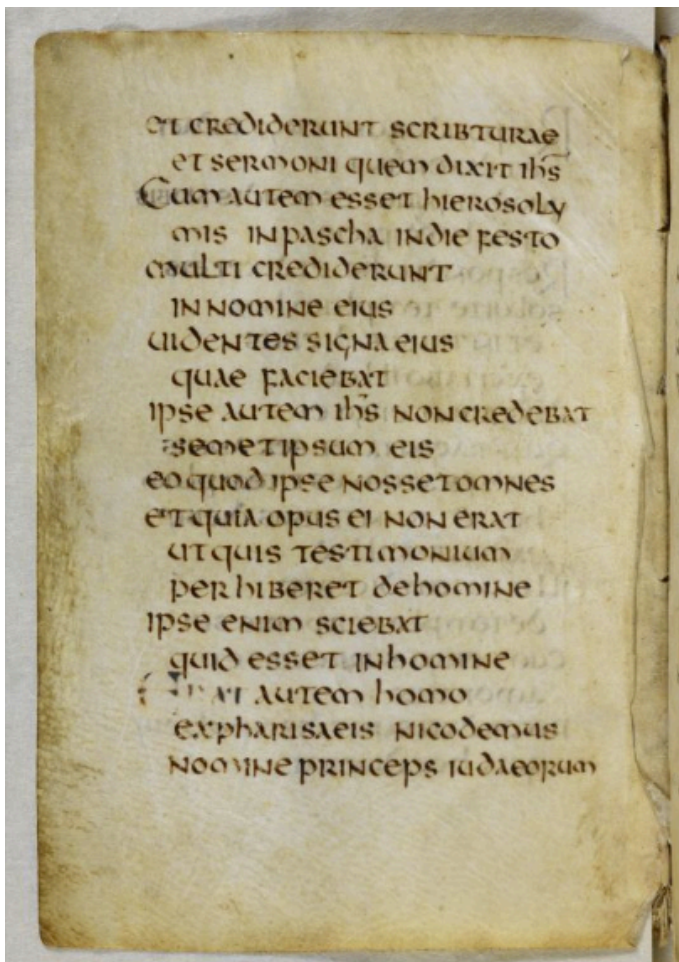 et crediderunt scribturae
et sermoni quem dixit ihs
Cum autem esset hierosoly
mis in pascha in die festo
multi crediderunt
in nomine eius
uidentes signa eius
quae faciebat
ipse autem ihs non credebat
semetipsum eis
eo quod ipse nosset omnes
et quia opus ei non erat
ut quis testimonium
perhiberet de homine
ipse enim sciebat
quid esset in homine
Erat autem homo
ex pharisaeis nicodemus
nomine princeps iudaeorum